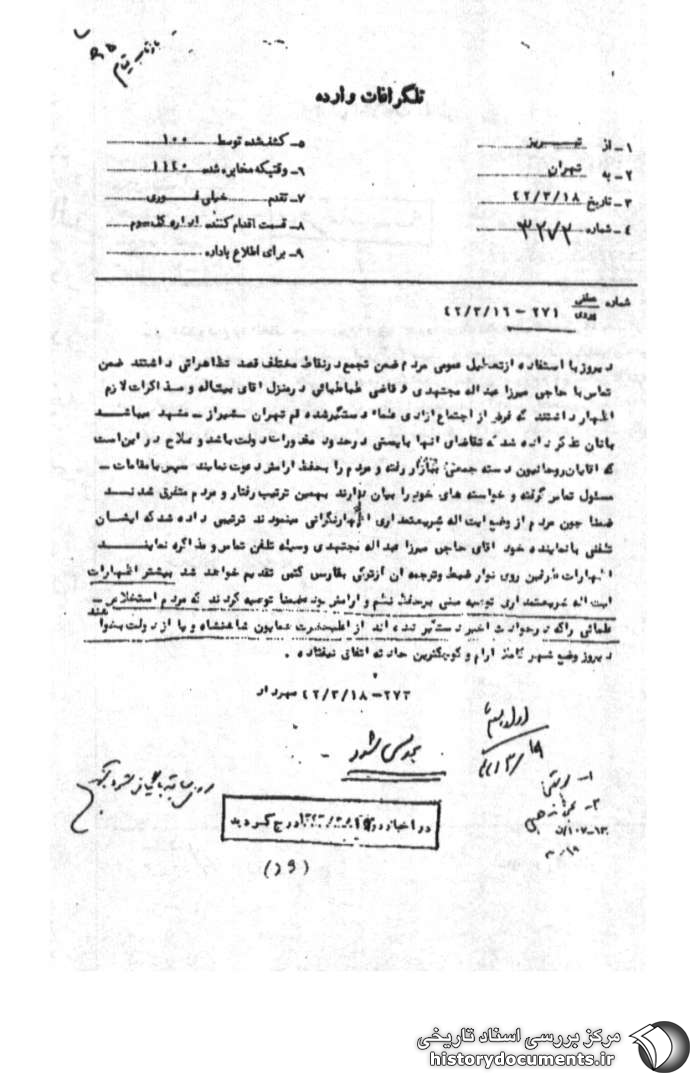 بازتاب قیام
تلگرافات وارده
۱ـ از تبـــریز
۲ـ به تهران
۳ـ تاریخ ۴۲/۳/۱۸
۴ـ شماره ۳۲۷۲
۵ـ کشف شده توسط ۱۰۰
۶ـ وقتیکه مخابره شده ۱۱۴۰
۷ـ تقدم خیلی فـوری
۸ـ قسمت اقدام کننده اداره کل سوم
۹ـ برای اطلاع باداره
شماره
۲۷۱ – ۴۲/۳/۱۶
دیروز با استفاده از تعطیل عمومی مردم ضمن تجمع در نقاط مختلف قصد تظاهراتی داشتند ضمن
تماس با حاجی میرزا عبداله مجتهدی و قاضی طباطبائی در منزل اقای و مذاکرات لازم
اظهار داشتند که غرض از اجتماع ازادی علماء دستگیر شده قم تهران ـ شیراز ـ مشهد میباشد
بانان تذکر داده شد که تقاضای انها بایستی در حدود مقدورات دولت باشد و صلاح در این است
که اقایان روحانیون دسته جمعی ببازار رفته و مردم را بحفظ ارامش دعوت نمایند سپس با مقامات ـ
مسئول تماس گرفته و خواسته های خود را بیان دارند بهمین ترتیب رفتار و مردم متفرق شدنـد
ضمنا چون مردم از وضع ایت اله شریعتمداری اظهار نگرانی مینمودند ترتیبی داده شد که ایشان
تلفنی با نماینده خود اقای حاجی میرزا عبداله مجتهدی وسیله تلفن تماس و مذاکره نماینــد
اظهارات طرفین روی نوار ضبط و ترجمه ان از ترکی بفارسی کتبی تقدیم خواهد شد بیشتر اظهارات
ایت اله شریعتمداری توصیه مبنی بر حفظ نظم و ارامش بود ضمنا توصیه کردند که مردم استخلاص ـ
علمائی را که در حوادث اخیر دستگیر شده اند از اعلیحضرت همایون شاهنشاه و یا از دولت بخواهند
دیروز وضع شهر کاملا ارام و کوچکترین حادثه اتفاق نیفتاده .
۲۷۳ – ۴۲/۳/۱۸ مهرداد
بررسی شود
۴۲/۳/۱۹
در اخبار روز درج گردید
(۲۹)
مرکز بررسی اسناد تاریخی
historydocuments.ir